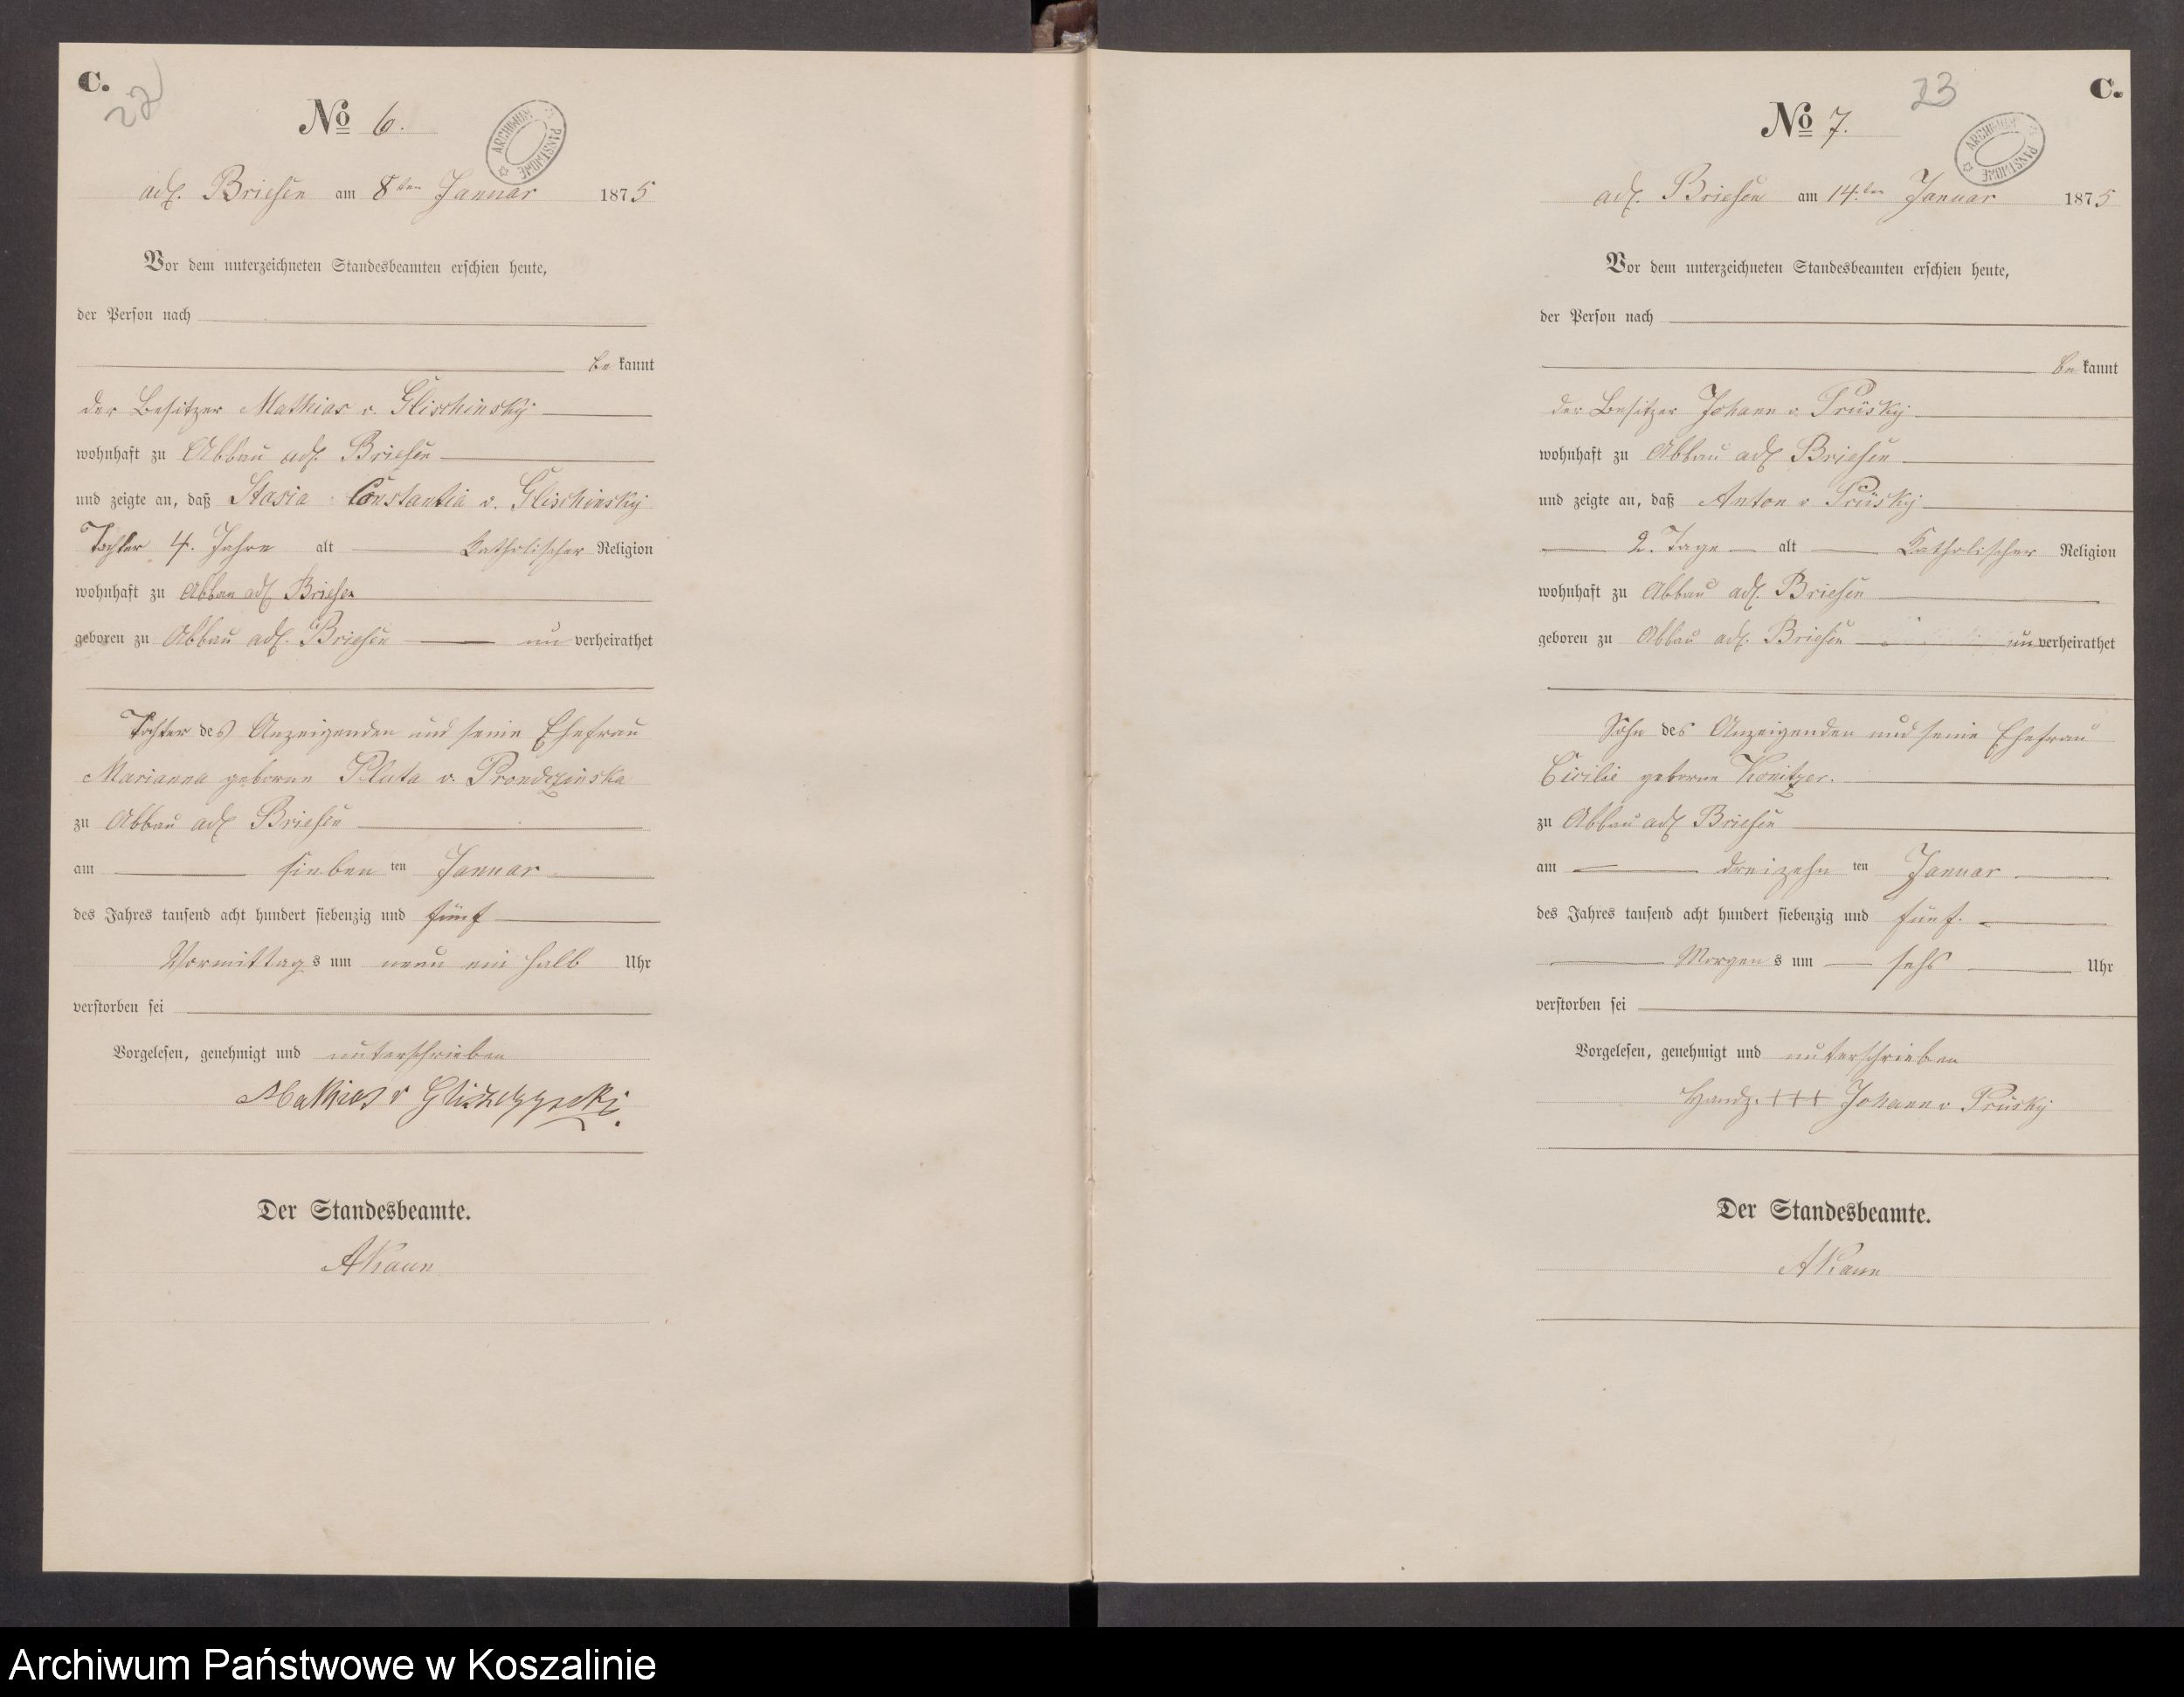 C.
22
No 6.
ARCHIWUM PAŃSTWOWE
adl. Briesen am 8ten Januar 1875
Vor dem unterzeichneten Standesbeamten erschien heute,
der Person nach
be kannt
der Besitzer Mathias v. Glischinsky
wohnhaft zu Abbau adl. Briesen
und zeigte an, daß Stasia Constantia v. Glischinsky
Tochter 4. Jahre alt Katholischer Religion
wohnhaft zu Abbau adl Briesen
geboren zu Abbau adl. Briesen un verheirathet
Tochter des Anzeigenden und seine Ehefrau
Marianna geborne Pluta v. Prondzinska
zu Abbau adl Briesen
am sieben ten Januar
des Jahres tausend acht hundert siebenzig und fünf
Vormittag s um neun ein halb Uhr
verstorben sei
Vorgelesen, genehmigt und unterschrieben
Mathias v
Der Standesbeamte.
AKaun
C.
23
No 7.
ARCHIWUM PAŃSTWOWE
adl. Briesen am 14.ten Januar 1875
Vor dem unterzeichneten Standesbeamten erschien heute,
der Person nach
be kannt
der Besitzer Johann v. Prüsky
wohnhaft zu Abbau adl Briesen
und zeigte an, daß Anton v Prüsky
2. Tage alt Katholischer Religion
wohnhaft zu Abbau adl. Briesen
geboren zu Abbau adl. Briesen un verheirathet
Sohn des Anzeigenden und seine Ehefrau
Cicilie geborne Konitzer.
zu Abbau adl Briesen
am dreizehn ten Januar
des Jahres tausend acht hundert siebenzig und fünf.
Morgen s um sehs Uhr
verstorben sei
Vorgelesen, genehmigt und unterschrieben
Handz. +++ Johann v Prüsky
Der Standesbeamte.
AKaun
Archiwum Państwowe w Koszalinie